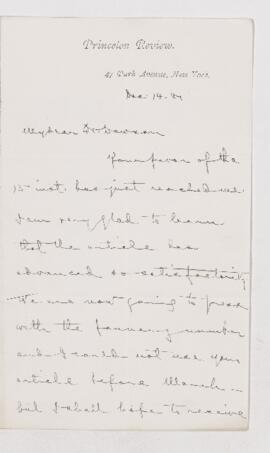 Princeton Review.
47 Park Avenue, New York.
Dec 14. 
My dear Dr Dawson
Your favor of the
13 inst. has just reached me.
I am very glad to learn
that the article has
advanced so satisfactorily
We are now going to press
with the January number
and I could not use your
article before March —
but I shall hope to receive